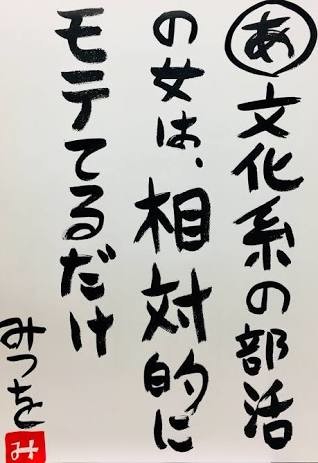 あ文化系の部活
の女は、相対的に
モテてるだけ
みつを
み